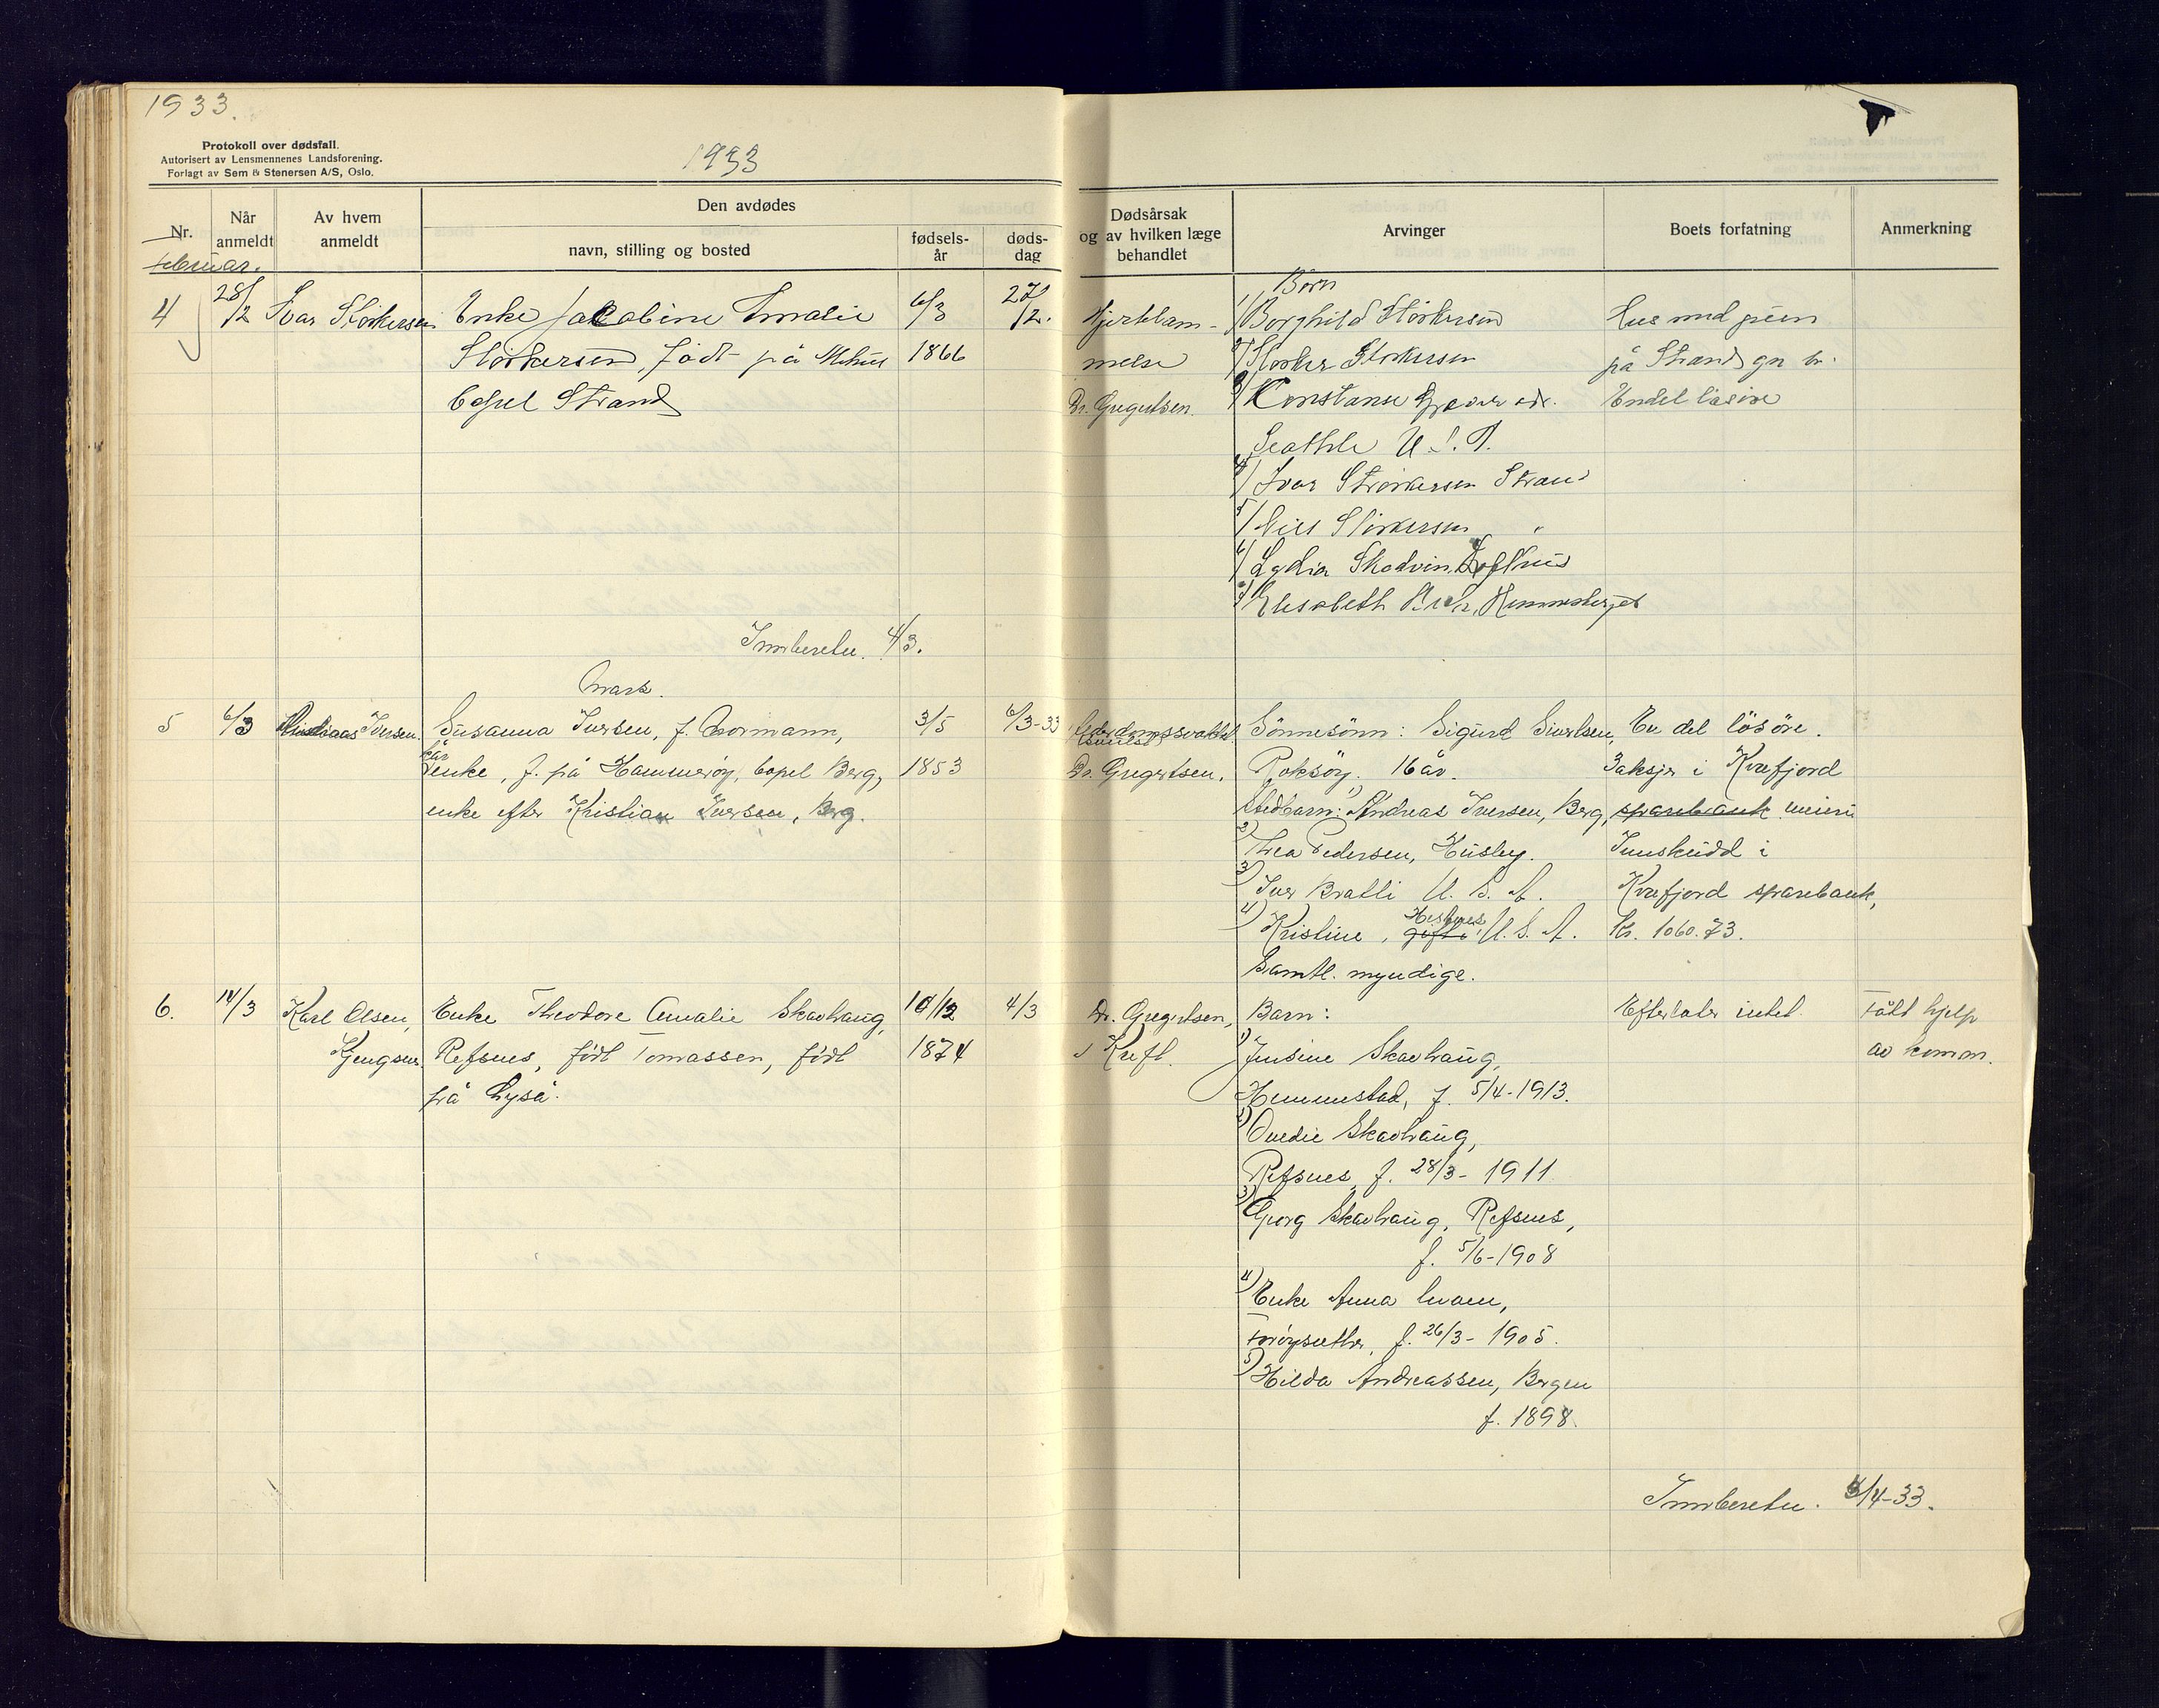 1933.
Protokoll over dødsfall.
Autorisert av Lensmennenes Landsforening.
Forlagt av Sem & Stenersen A/S, Oslo.
1933
Nr.
Når anmeldt
Av hvem anmeldt
Den avdødes
navn, stilling og bosted
fødselsår
dødsdag
Dødsårsak og av hvilken læge behandlet
Arvinger
Boets forfatning
Anmerkning
Februar.
4 28/2 Ivar Störkersen Enke Jacobine Amalie 6/3 27/2.
Störkersen, födt på 1866
bopel Strand
Hjertelam-
melse
Dr. Gregertsen.
Börn
1/ Borghild Störkersen
2/ Störker Störkersen
3/ Konstanse
Seattle U.S.A.
4/ Ivar Störkersen Strand
5/ Nils Störkersen "
6/ Lydia Skodvin, Lofthus
7/ Elisabeth Hemmesberget
Hus med
på Strand gn br.
Endel lösöre
Innberetn. 4/3.
Mars.
5 6/3 Iversen. Susanna Iversen, f. Normann, 3/5 6/3-33
enke, f. på Hammeröy, bopel Berg, 1853
enke efter Kristian Iversen, Berg.
Alderdomssvakhet
Dr. Gregertsen.
Sönnesönn: Sigurd Sivertsen,
Roksöy. 16 år.
Stedbarn: 1) Andreas Iversen, Berg,
2) Thea Pedersen, Husby.
3) Iver Bratli U.S.A.
4) Kristine, gift U.S.A.
Samtl. myndige.
En del lösöre.
3 aksjer i Kvæfjord
sparebank meieri
Innskudd i
Kvæfjord sparebank,
Kr. 1060.73.
6. 14/3 Karl Olsen, Enke Theodore Amalie Skavhaug, 10/12 4/3
Gjengsnes. Refsnes, född Tomassen, född 1874
på Lyså.
Dr. Gregertsen,
Kreft.
Barn:
1) Jensine Skavhaug,
Hemmestad, f. 5/4-1913.
2) Ovedie Skavhaug,
Refsnes, f. 28/3-1911
3) Georg Skavhaug, Refsnes,
f. 5/6-1908
4) Enke Anna Kvam,
f. 26/3-1905.
5) Hilda Andreassen, Bergen
f. 1898.
Efterlater intet.
Fått hjelp
av komm.
Innberetn. /4-33.